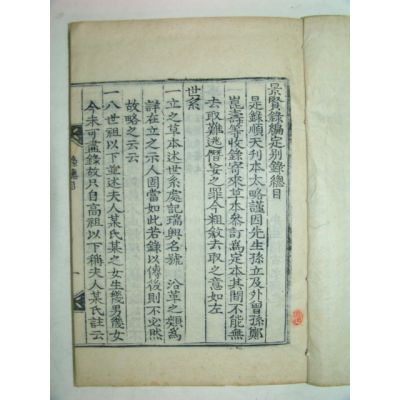 景賢錄編定別錄總目
是錄順天刊本太略謹因先生孫立及外曾孫鄭
崑壽等收錄寄來草本參訂爲定本其間不能無
去取難逃僭妄之罪今粗敘去取之意如左
世系
一立之草本述世系處記瑞興名號沿革之類爲
詳在立之示人固當如此若錄以傳後則不必然
故略之云云
一八世祖以下並述夫人某氏某之女生幾男幾女
今未可盡錄故只自高祖以下稱夫人某氏註云